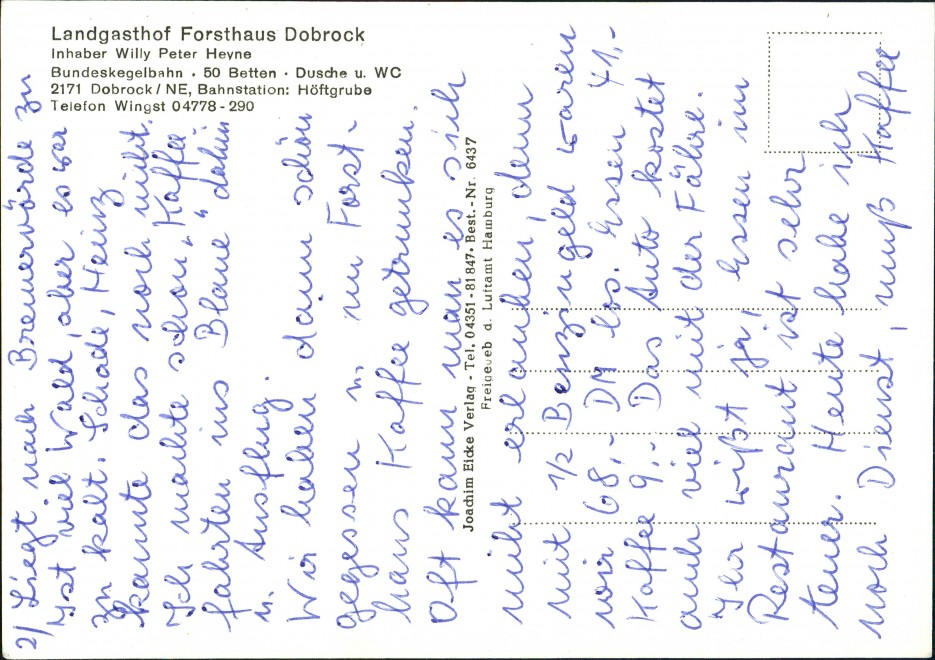 Landgasthof Forsthaus Dobrock
Inhaber Willy Peter Heyne
Bundeskegelbahn · 50 Betten · Dusche u. WC
2171 Dobrock / NE, Bahnstation: Höftgrube
Telefon Wingst 04778-290
Joachim Eicke Verlag - Tel. 04351-81847 · Best.-Nr. 6437
Freigegeb d. Luftamt Hamburg
2/ Liegt nach Bremervörde zu
Ist viel Wald, aber es war
zu kalt. Schade, Heinz
kannte das noch nicht.
Ich machte schon „Kaffee
fahrten ins Blaue" dahin
u. Ausflug.
Wir haben dann schön
gegessen u. im Forst-
haus Kaffee getrunken.
Oft kann man es sich
nicht erlauben, denn
mit 1/2 Benzingeld waren
wir 68,- DM los. Essen 41,-
Kaffee 9,- Das Auto kostet
auch viel mit der Fähre.
Ihr wißt ja, Essen im
Restaurant ist sehr
teuer. Heute habe ich
noch Dienst, muß Kaffee